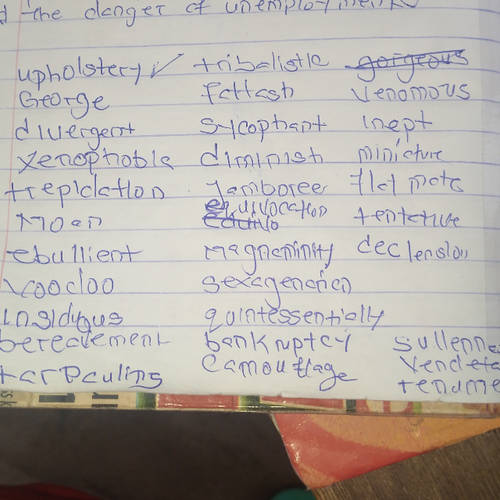 the danger of unemployment
upholstery ✓ tribalistic gorgeous
George fettash venomous
divergent sycophant inept
xenophobic diminish
trepidation Jamboree
equivocation tentative
ebullient magnaminity declension
voodoo sexagenarian
insidyous quintessentially
bereavement bankruptcy
tarpaulins camouflage